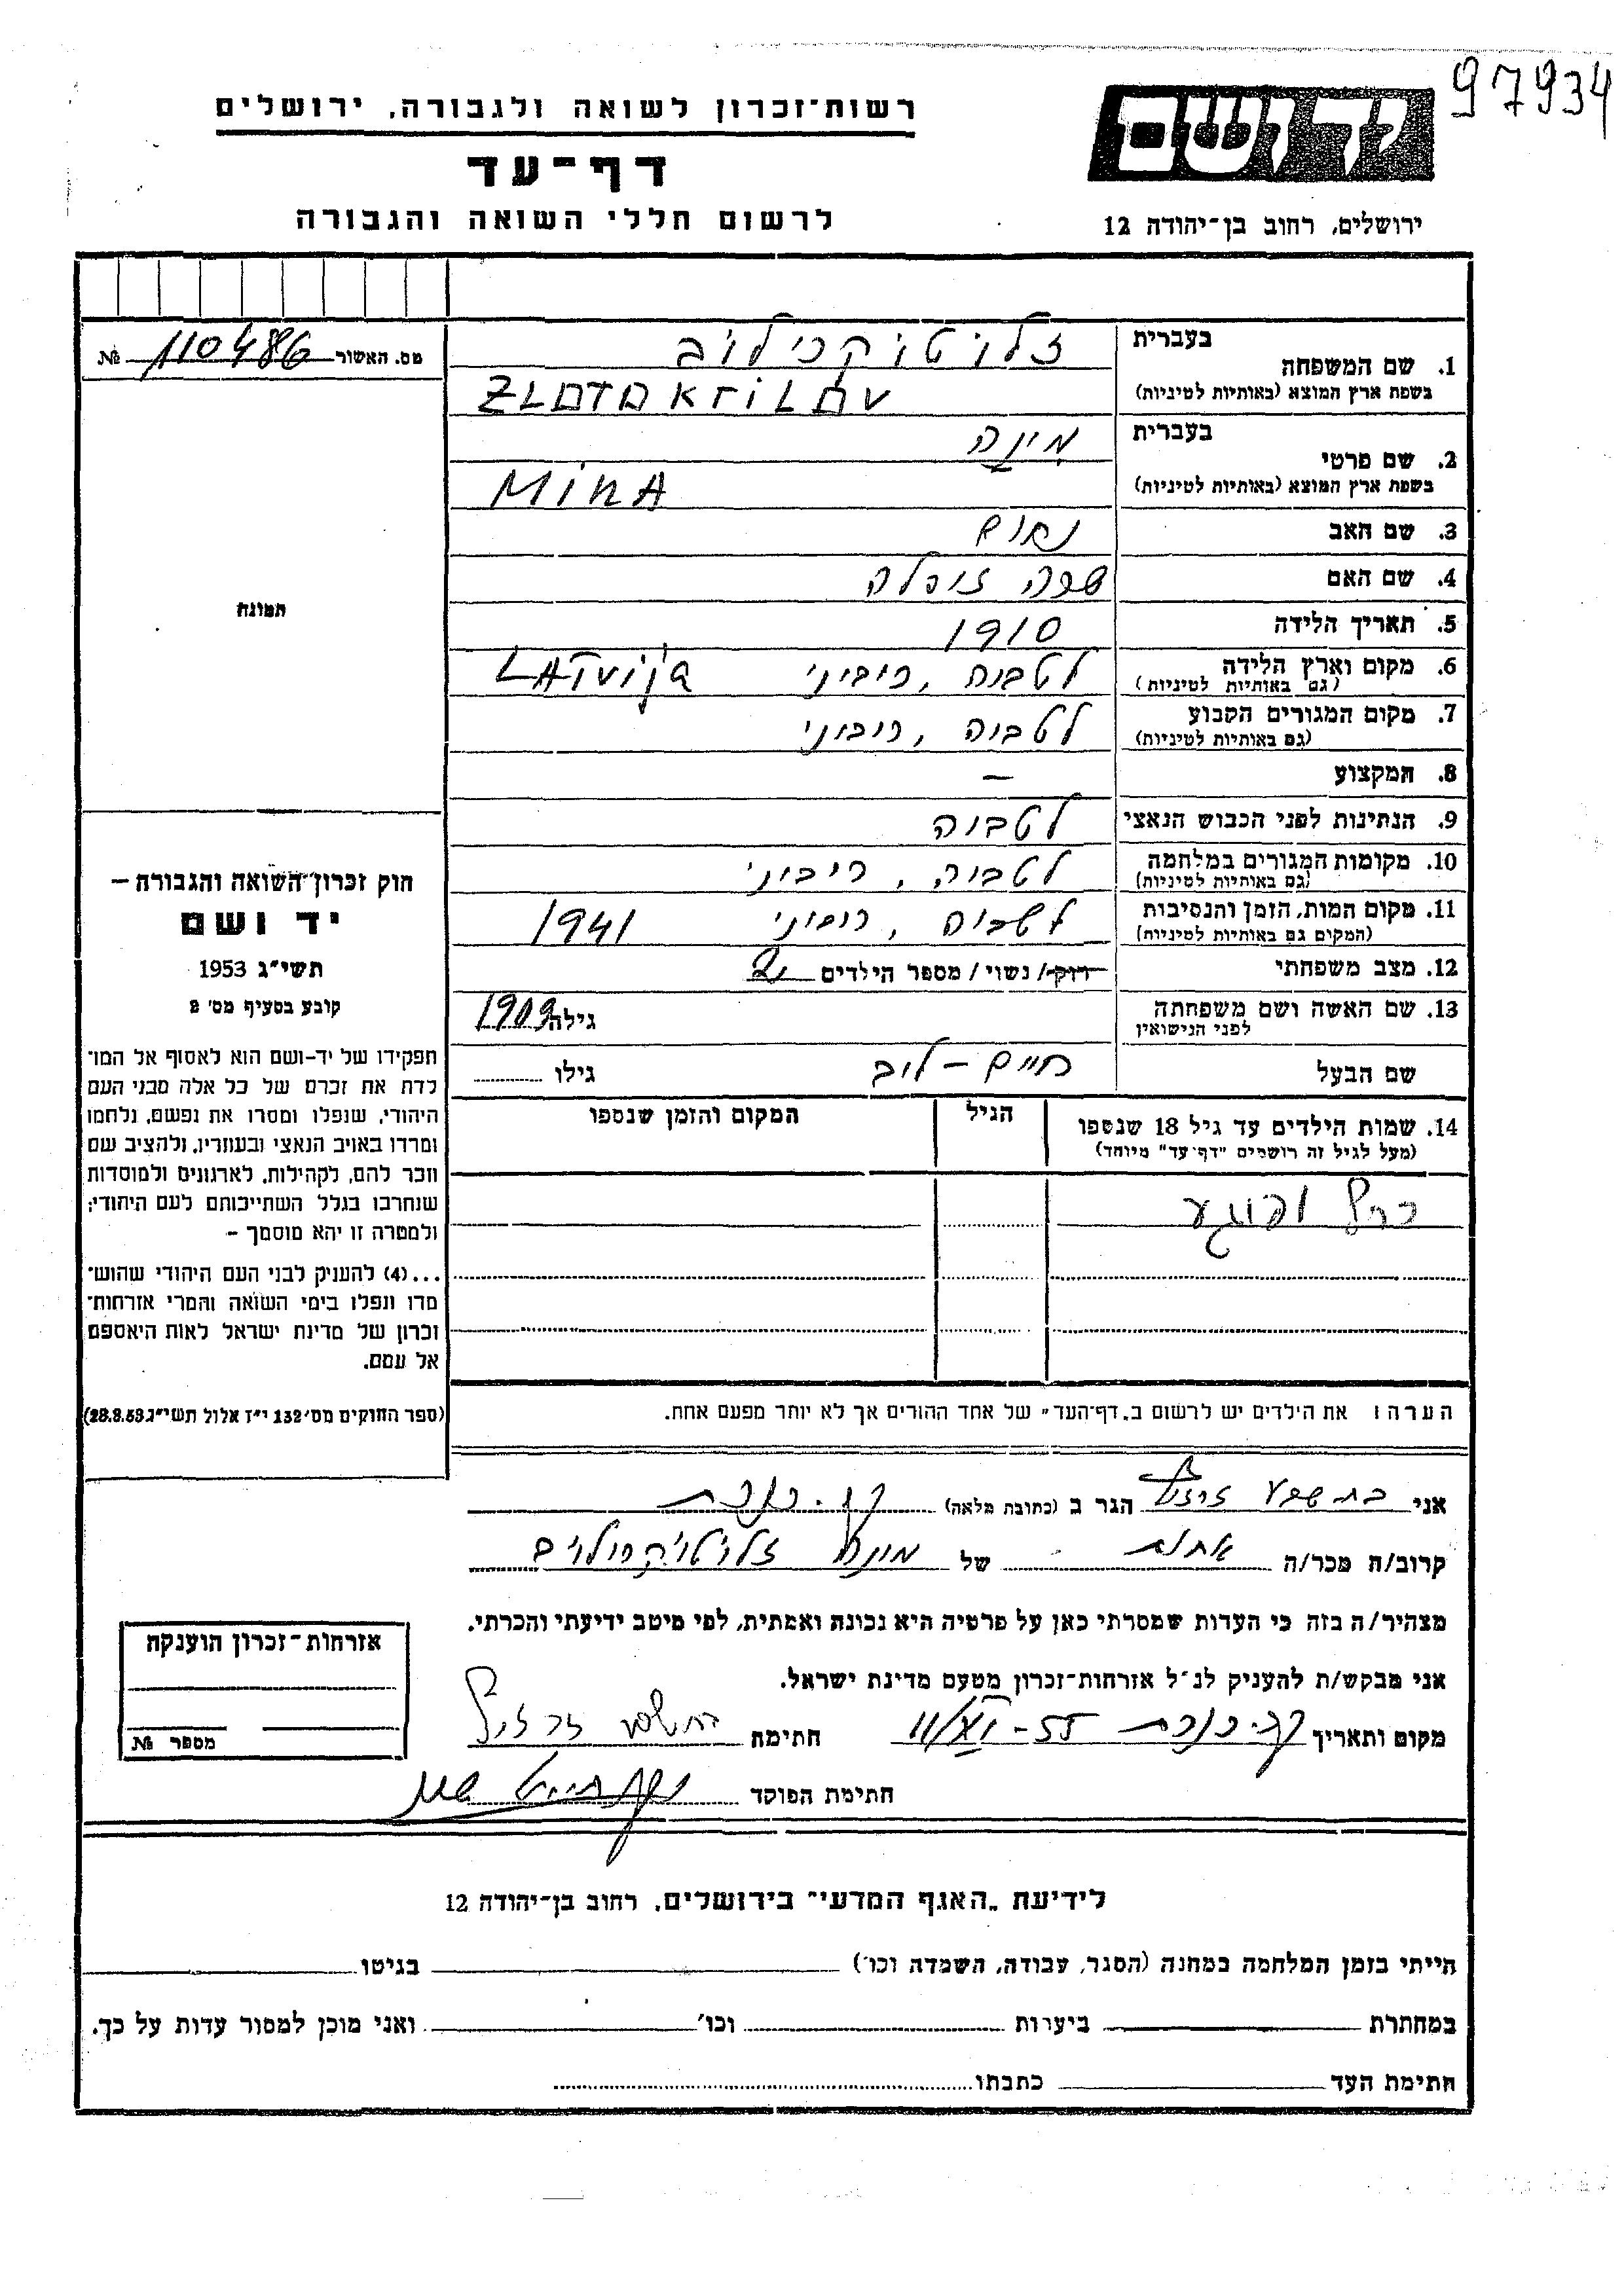 97934
יד ושם
ירושלים, רחוב בן־יהודה 12
רשות־זכרון לשואה ולגבורה, ירושלים
דף־עד
לרשום חללי השואה והגבורה
מס. האשור 110486 №
1. שם המשפחה
בעברית זלוטוקרילוב
בשפת ארץ המוצא (באותיות לטיניות) ZLOTOKriLOV
2. שם פרטי
בעברית מינה
בשפת ארץ המוצא (באותיות לטיניות) MiNA
3. שם האב נחום
4. שם האם שרה
5. תאריך הלידה 1910
6. מקום וארץ הלידה לטביה, ריביני LATvija
(גם באותיות לטיניות)
7. מקום המגורים הקבוע לטביה, ריביני
(גם באותיות לטיניות)
8. המקצוע —
9. הנתינות לפני הכבוש הנאצי לטביה
10. מקומות המגורים במלחמה לטביה, ריביני
(גם באותיות לטיניות)
11. מקום המות, הזמן והנסיבות לטביה, ריביני 1941
(המקום גם באותיות לטיניות)
12. מצב משפחתי רוק/ נשוי / מספר הילדים 2
13. שם האשה ושם משפחתה גילה 1909
לפני הנישואין
שם הבעל חיים - לייב גילו
14. שמות הילדים עד גיל 18 שנספו הגיל המקום והזמן שנספו
(מעל לגיל זה רושמים "דף־עד" מיוחד)
הערה: את הילדים יש לרשום ב„דף־העד" של אחד ההורים אך לא יותר מפעם אחת.
תמונה
חוק זכרון־השואה והגבורה –
יד ושם
תשי"ג 1953
קובע בסעיף מס' 2
תפקידו של יד־ושם הוא לאסוף אל המו־
לדת את זכרם של כל אלה מבני העם
היהודי, שנפלו ומסרו את נפשם, נלחמו
ומרדו באויב הנאצי ובעוזריו, ולהציב שם
וזכר להם, לקהילות, לארגונים ולמוסדות
שנחרבו בגלל השתייכותם לעם היהודי;
ולמטרה זו יהא מוסמך –
...(4) להעניק לבני העם היהודי שהוש־
מדו ונפלו בימי השואה והמרי אזרחות־
זכרון של מדינת ישראל לאות היאספם
אל עמם.
(ספר החוקים מס' 132 י"ז אלול תשי"ג 28.8.53)
אני בת שבע הגר ב (כתובת מלאה) ק. כנרת
קרוב/ה מכר/ה אחות של מינה זלוטוקרילוב
מצהיר/ה בזה כי העדות שמסרתי כאן על פרטיה היא נכונה ואמתית, לפי מיטב ידיעתי והכרתי.
אני מבקש/ת להעניק לנ"ל אזרחות־זכרון מטעם מדינת ישראל.
מקום ותאריך ק. כנרת חתימה
חתימת הפוקד
אזרחות־זכרון הוענקה
מספר №
לידיעת „האגף המדעי" בירושלים, רחוב בן־יהודה 12
הייתי בזמן המלחמה במחנה (הסגר, עבודה, השמדה וכו') בגיטו
במחתרת ביערות וכו' ואני מוכן למסור עדות על כך.
חתימת העד כתבתו